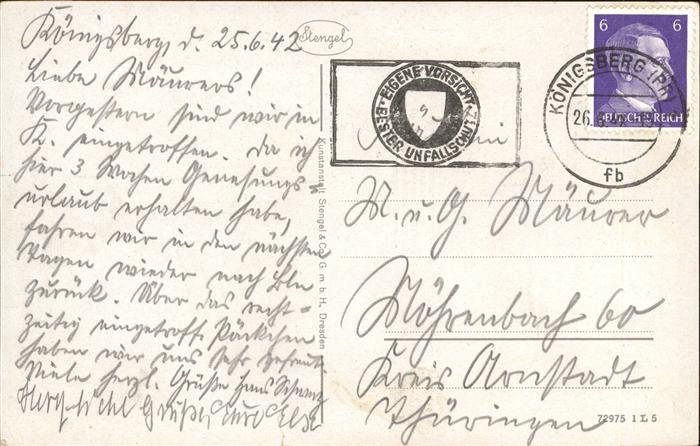 Königsberg, d. 25.6.42
Liebe Mäurers!
Vorgestern sind wir in
K. eingetroffen. Da ich
hier 3 Wochen Genesungs-
urlaub erhalten habe,
fahren wir in den nächsten
Tagen wieder nach Bln
zurück. Über das recht-
zeitig eingetroff. Päckchen
haben wir uns sehr gefreut.
Viele herzl. Grüße Hans
Herzlichst grüßt Eure
Stengel
Kunstanstalt Stengel & Co., G. m. b. H., Dresden
EIGENE VORSICHT
BESTER UNFALLSCHUTZ
KÖNIGSBERG (PR)
26.6
fb
6 6
DEUTSCHES REICH
M. u. G. Mäurer
Möhrenbach 60
Kreis Arnstadt
Thüringen
72975 1 L 5